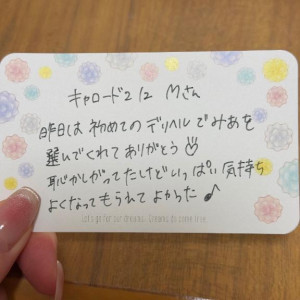 キャロード212 Mさん
昨日は初めてのデリヘルでみあを
選んでくれてありがとう
恥かしがってたけどいっぱい気持ち
よくなってもられてよかった♪